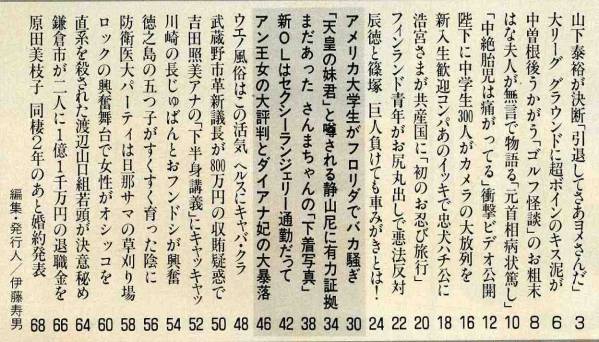 山下泰裕が決断「引退してさあヨメさんだ」 3
大リーグ グラウンドに超ボインのキス泥が 6
中曽根後うかがう「ゴルフ怪談」のお粗末 8
はな夫人が無言で物語る「元首相病状篤し」 10
「中絶胎児は痛がってる」衝撃ビデオ公開 12
陛下に中学生300人がカメラの大放列を 16
新入生歓迎コンパあのイッキで忠犬ハチ公に 18
浩宮さまが共産国に「初のお忍び旅行」 20
フィンランド青年がお尻丸出しで悪法反対 22
辰徳と篠塚 巨人負けても車みがきとは! 24
アメリカ大学生がフロリダでバカ騒ぎ 30
「天皇の妹君」と噂される静山尼に有力証拠 34
まだあった さんまちゃんの「下着写真」 38
新OLはセクシーランジェリー通勤だって 42
アン王女の大評判とダイアナ妃の大暴落 46
ウエア風俗はこの活気 ヘルスにキャバクラ 48
武蔵野市革新議長が800万円の収賄疑惑で 50
吉田照美アナの「下半身講義」にキャッキャッ 52
川崎の長じゅばんとおフンドシが興奮 54
徳之島の五つ子がすくすく育った陰に 56
防衛医大パーティは旦那サマの草刈り場 58
ロックの興奮舞台で女性がオシッコを 60
直系を殺された渡辺山口組若頭が決意秘め 64
鎌倉市が二人に1億1千万円の退職金を 66
原田美枝子 同棲2年のあと婚約発表 68
編集・発行人/伊藤寿男